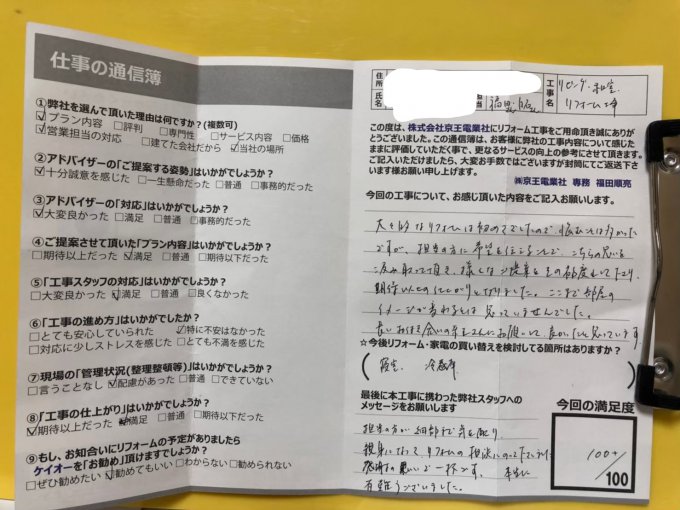 仕事の通信簿
①弊社を選んで頂いた理由は何ですか?(複数可)
☑プラン内容 □評判 □専門性 □サービス内容 □価格
☑営業担当の対応 □建てた会社だから ☑当社の場所
②アドバイザーの「ご提案する姿勢」はいかがでしょうか?
☑十分誠意を感じた □一生懸命だった □普通 □事務的だった
③アドバイザーの「対応」はいかがでしょうか?
☑大変良かった □満足 □普通 □事務的だった
④ご提案させて頂いた「プラン内容」はいかがでしょうか?
□期待以上だった ☑満足 □普通 □期待以下だった
⑤「工事スタッフの対応」はいかがでしょうか?
□大変良かった ☑満足 □普通 □良くなかった
⑥「工事の進め方」はいかがでしたか?
□とても安心していられた ☑特に不安はなかった
□対応に少しストレスを感じた □とても不満を感じた
⑦現場の「管理状況(整理整頓等)」はいかがでしょうか?
□言うことなし ☑配慮があった □普通 □できていない
⑧「工事の仕上がり」はいかがでしょうか?
☑期待以上だった 満足 □普通 □期待以下だった
⑨もし、お知合いにリフォームの予定がありましたら
ケイオーを「お勧め」頂けますでしょうか?
□ぜひ勧めたい ☑勧めてもいい □わからない □勧められない
住所
氏名
担当
工事名
リビング・和室
リフォーム工事
この度は、株式会社京王電業社にリフォーム工事をご用命頂き誠にありが
とうございました。この通信簿は、お客様に弊社の工事内容について感じた
ままに評価していただく事で、更なるサービスの向上の参考にさせて頂きます。
ご記入いただけましたら、大変お手数ではございますが封筒にてご返送下さ
います様お願い申し上げます。
㈱京王電業社 専務 福田順亮
今回の工事について、お感じ頂いた内容をご記入お願いします。
大々的なリフォームは初めてでしたので
ですが、担当の方に希望を伝えることで、こちらの思いを
期待以上の仕上がりとなりました。ここまで部屋の
イメージが変わるとは思っていませんでした。
☆今後リフォーム・家電の買い替えを検討してる箇所はありますか?
冷蔵庫
最後に本工事に携わった弊社スタッフへの
メッセージをお願いします
担当の方が細部まで気を配り
親身になって、リフォームの相談にのって下さり
感謝の思いで一杯です。本当に
有難うございました。
今回の満足度
100+
/100